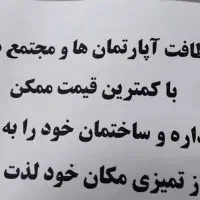 ظافت آپارتمان ها و مجتمع
با کمترین قیمت ممکن
داره و ساختمان خود را به
ز تمیزی مکان خود لذت